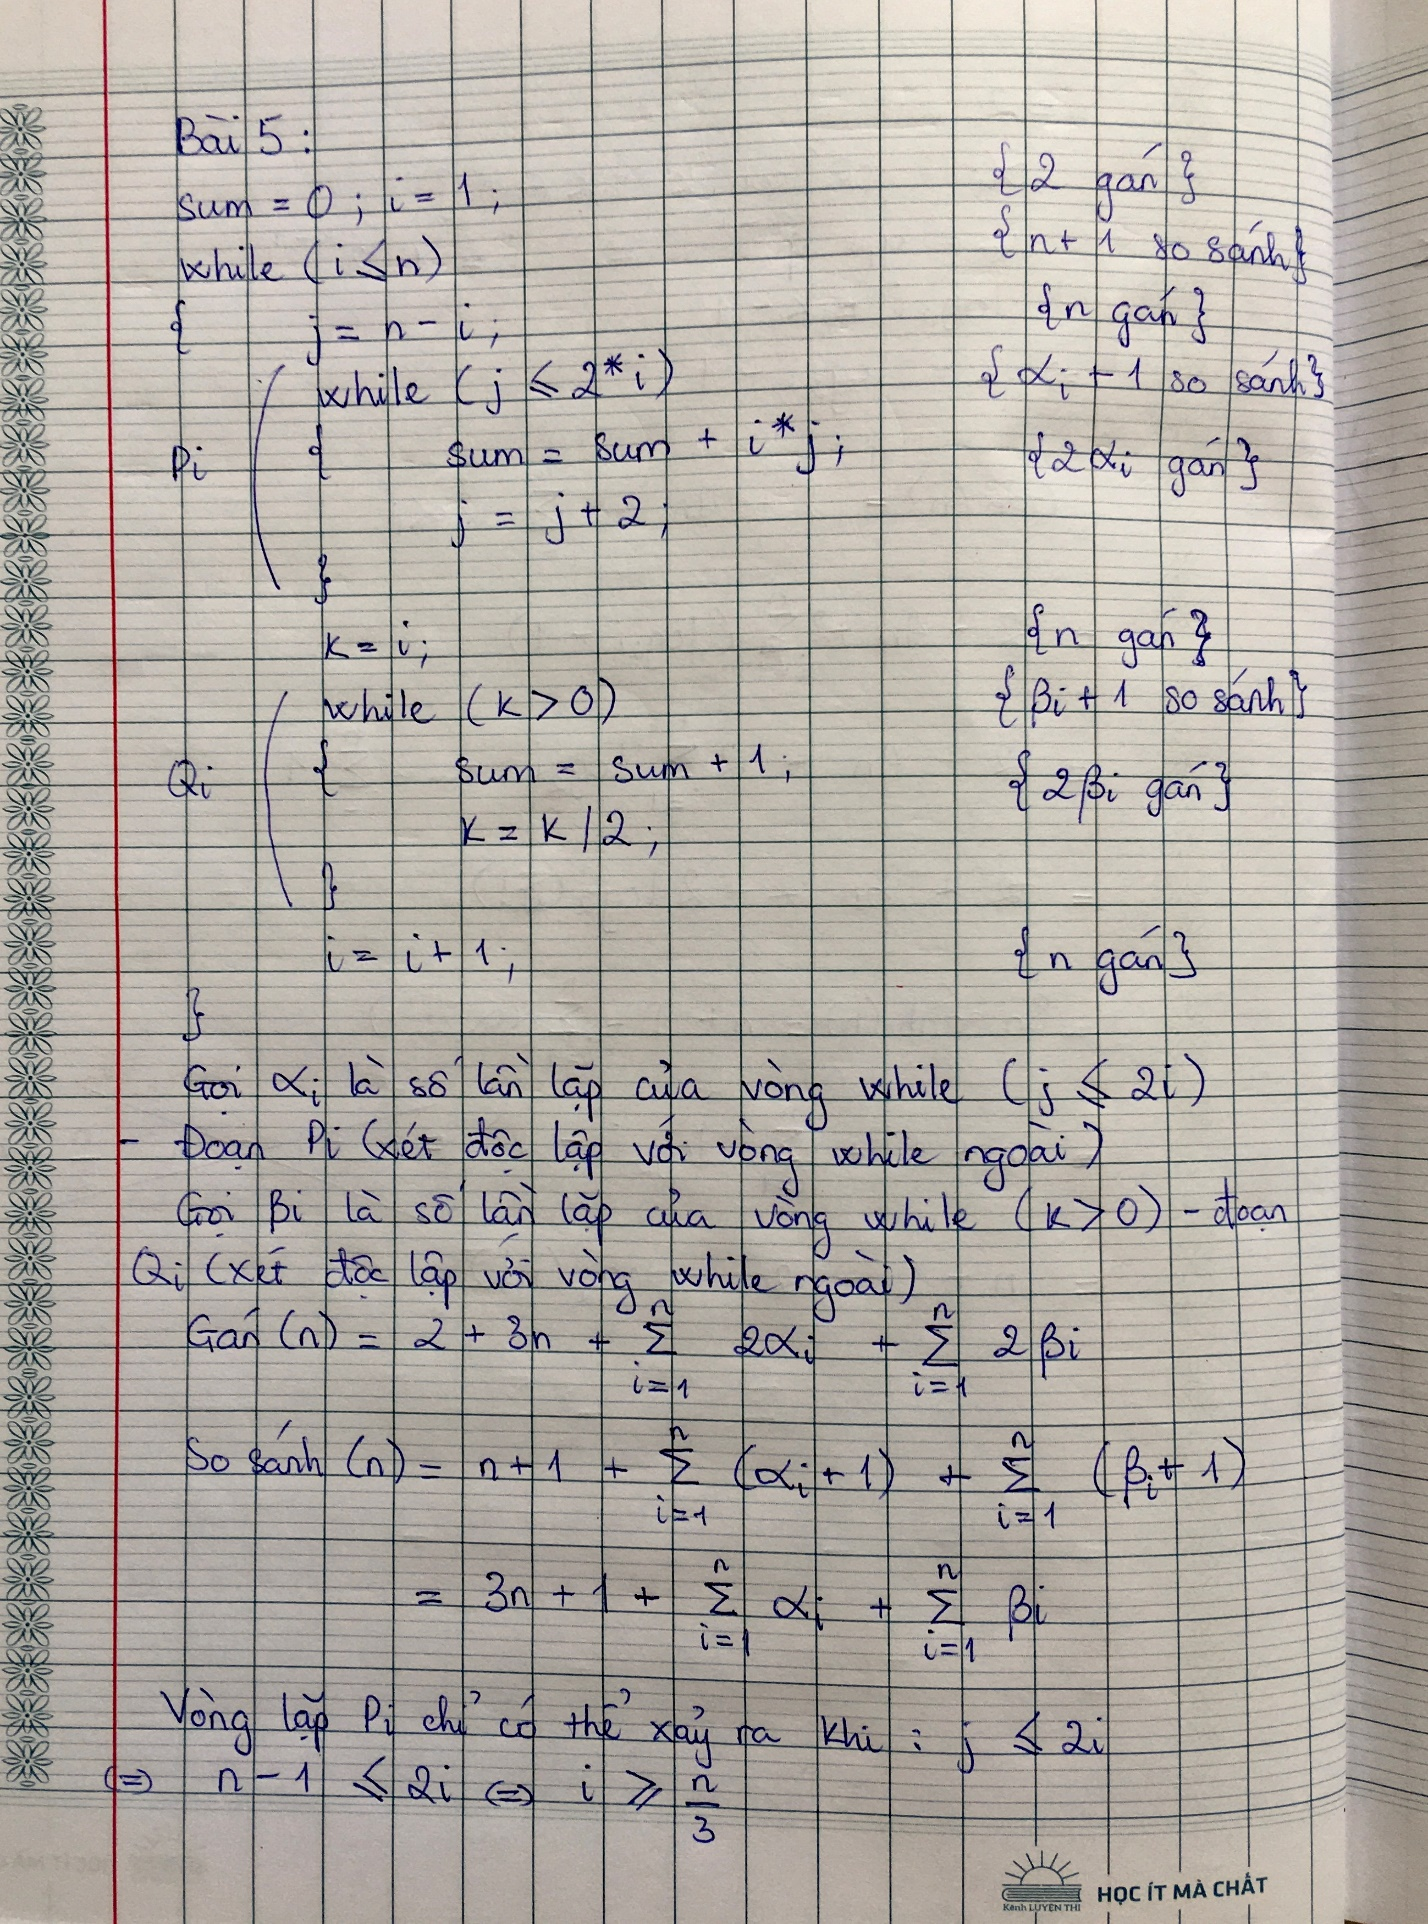 Bài 5 :
sum = 0 ; i = 1 ; {2 gán}
while (i ≤ n) {n + 1 so sánh}
{ j = n - i ; {n gán}
while (j ≤ 2*i) {αi + 1 so sánh}
Pi { sum = sum + i*j ; {2αi gán}
j = j + 2 ;
}
k = i ; {n gán}
while (k > 0) {βi + 1 so sánh}
Qi { sum = sum + 1 ; {2βi gán}
k = k / 2 ;
}
i = i + 1 ; {n gán}
}
Gọi αi là số lần lặp của vòng while (j ≤ 2i)
- Đoạn Pi (xét độc lập với vòng while ngoài)
Gọi βi là số lần lặp của vòng while (k > 0) - đoạn
Qi (xét độc lập với vòng while ngoài)
Gán (n) = 2 + 3n + ∑_{i=1}^{n} 2αi + ∑_{i=1}^{n} 2βi
So sánh (n) = n + 1 + ∑_{i=1}^{n} (αi + 1) + ∑_{i=1}^{n} (βi + 1)
= 3n + 1 + ∑_{i=1}^{n} αi + ∑_{i=1}^{n} βi
Vòng lặp Pi chỉ có thể xảy ra khi : j ≤ 2i
(=) n - 1 ≤ 2i (=) i ≥ n/3
Kênh LUYỆN THI
HỌC ÍT MÀ CHẤT